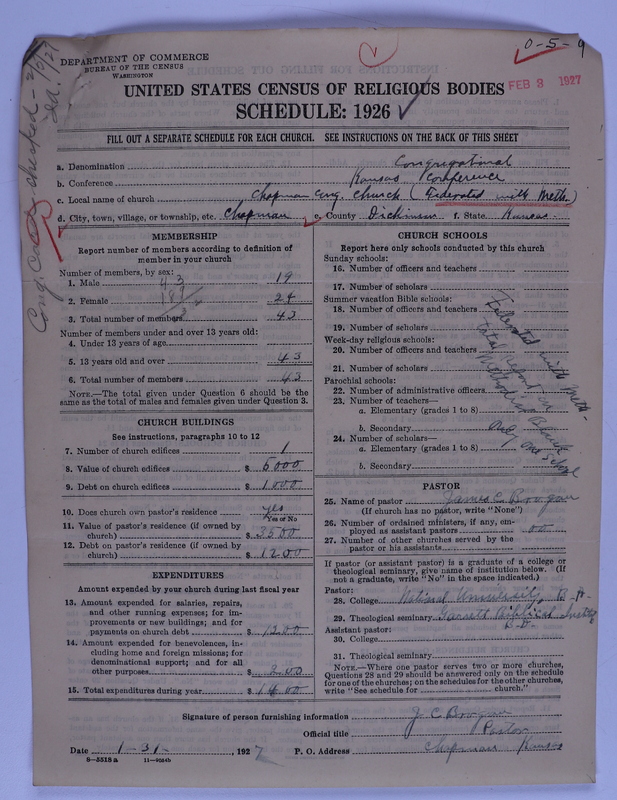 0-5-9
DEPARTMENT OF COMMERCE
BUREAU OF THE CENSUS
WASHINGTON
FEB 3 1927
UNITED STATES CENSUS OF RELIGIOUS BODIES
SCHEDULE: 1926
FILL OUT A SEPARATE SCHEDULE FOR EACH CHURCH. SEE INSTRUCTIONS ON THE BACK OF THIS SHEET
a. Denomination Congregational
b. Conference Kansas Conference
c. Local name of church Chapman Cong. Church (Federated with Meth.)
d. City, town, village, or township, etc. Chapman e. County Dickinson f. State Kansas
MEMBERSHIP
Report number of members according to definition of
member in your church
Number of members, by sex:
1. Male 19
2. Female 24
3. Total number of members 43
Number of members under and over 13 years old:
4. Under 13 years of age
5. 13 years old and over 43
6. Total number of members 43
NOTE.—The total given under Question 6 should be the
same as the total of males and females given under Question 3.
CHURCH BUILDINGS
See instructions, paragraphs 10 to 12
7. Number of church edifices 1
8. Value of church edifices $ 5000
9. Debt on church edifices $ 1000
10. Does church own pastor's residence yes
Yes or No
11. Value of pastor's residence (if owned by
church) $ 3500
12. Debt on pastor's residence (if owned by
church) $ 1200
EXPENDITURES
Amount expended by your church during last fiscal year
13. Amount expended for salaries, repairs,
and other running expenses; for im-
provements or new buildings; and for
payments on church debt $ 1200
14. Amount expended for benevolences, in-
cluding home and foreign missions; for
denominational support; and for all
other purposes $ 200
15. Total expenditures during year $ 1400
CHURCH SCHOOLS
Report here only schools conducted by this church
Sunday schools:
16. Number of officers and teachers
17. Number of scholars
Summer vacation Bible schools:
18. Number of officers and teachers
19. Number of scholars
Week-day religious schools:
20. Number of officers and teachers
21. Number of scholars
Parochial schools:
22. Number of administrative officers
23. Number of teachers—
a. Elementary (grades 1 to 8)
b. Secondary
24. Number of scholars—
a. Elementary (grades 1 to 8)
b. Secondary
Federated with Meth-
total report on
Methodist Blank
only one School
PASTOR
25. Name of pastor James C. Bowgan
(If church has no pastor, write "None")
26. Number of ordained ministers, if any, em-
ployed as assistant pastors
27. Number of other churches served by the
pastor or his assistants
If pastor (or assistant pastor) is a graduate of a college or
theological seminary, give name of institution below. (If
not a graduate, write "No" in the space indicated.)
Pastor:
28. College National University B-A-
29. Theological seminary Garrett Biblical
B-D-
Assistant pastor:
30. College
31. Theological seminary
NOTE.—Where one pastor serves two or more churches,
Questions 28 and 29 should be answered only on the schedule
for one of the churches; on the schedules for the other churches,
write "See schedule for church."
Signature of person furnishing information J. C. Bowgan
Official title Pastor
Date 1-31- 1927 P. O. Address Chapman Kansas
8—5518 a 11—9054b